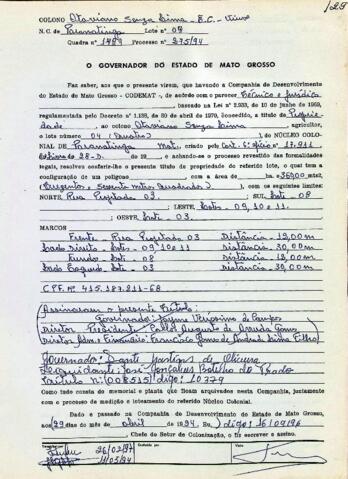 129
COLONO Otaviano Souza Lima - E.C. - 
N. C. de Paranatinga Lote nº 09
Quadra nº 1789 Processo nº 275/94
O GOVERNADOR DO ESTADO DE MATO GROSSO
Faz saber, aos que o presente virem, que havendo a Companhia de Desenvolvimento
do Estado de Mato Grosso - CODEMAT -, de acordo com o parecer Técnico e Jurídico
, bascado na Lei nº 2.933, de 10 de junho de 1969,
regulamentada pelo Decreto nº 1.138, de 30 de abril de 1970, concedido, a título de
de , ao Otaviano Souza Lima , agricultor,
o lote número 04 (Quatro) do NÚCLEO COLO-
NIAL DE Paranatinga Mat. criado pelo Cart. 6º ofício nº 17.911
de 19 , e achando-se o processo revestido das formalidades
legais, resolveu conferir-lhe o presente título de propriedade do referido lote, o qual tem a
configuração de um polígono com a área de 36000 mts2,
( Sessenta Metros Quadrados ), com os seguintes limites:
NORTE, Rua Projetada 03 ; SUL, Lote 08
; LESTE, Lotes 09, 10 e 11.
; OESTE, Lote 03.
MARCOS
Frente - Rua Projetada 03 Distância - 12,00m
Lado Direito - Lotes - 09, 10 e 11 Distância - 30,00m
Fundo - Lote 08 Distância - 12,00m
Lado Esquerdo - Lote 03 Distância - 30,00m
C.P.F. Nº 415.187.811-68
Assinaram o presente Título:
Governador: Jayme Veríssimo de Campos
Diretor Presidente: Carlos Augusto de Arruda Gomes
Diretor Adm. e Financeiro: Francisco Gomes de Andrade Lima Filho
Governador: Dante Martins de Oliveira
Liquidante: José Gonçalves Botelho do Prado
Título N.: 008515/digo: 10379
Como tudo consta do memorial e planta que ficam arquivados nesta Companhia, juntamente
com o processo de medição e loteamento do referido Núcleo Colonial.
Dado e passado na Companhia de Desenvolvimento do Estado de Mato Grosso,
aos 29 dias do mês de abril de 1994. Eu, digo: 16/09/96
, Chefe do Setor de Colonização, o fiz escrever e assino.
Visto
26/02/97